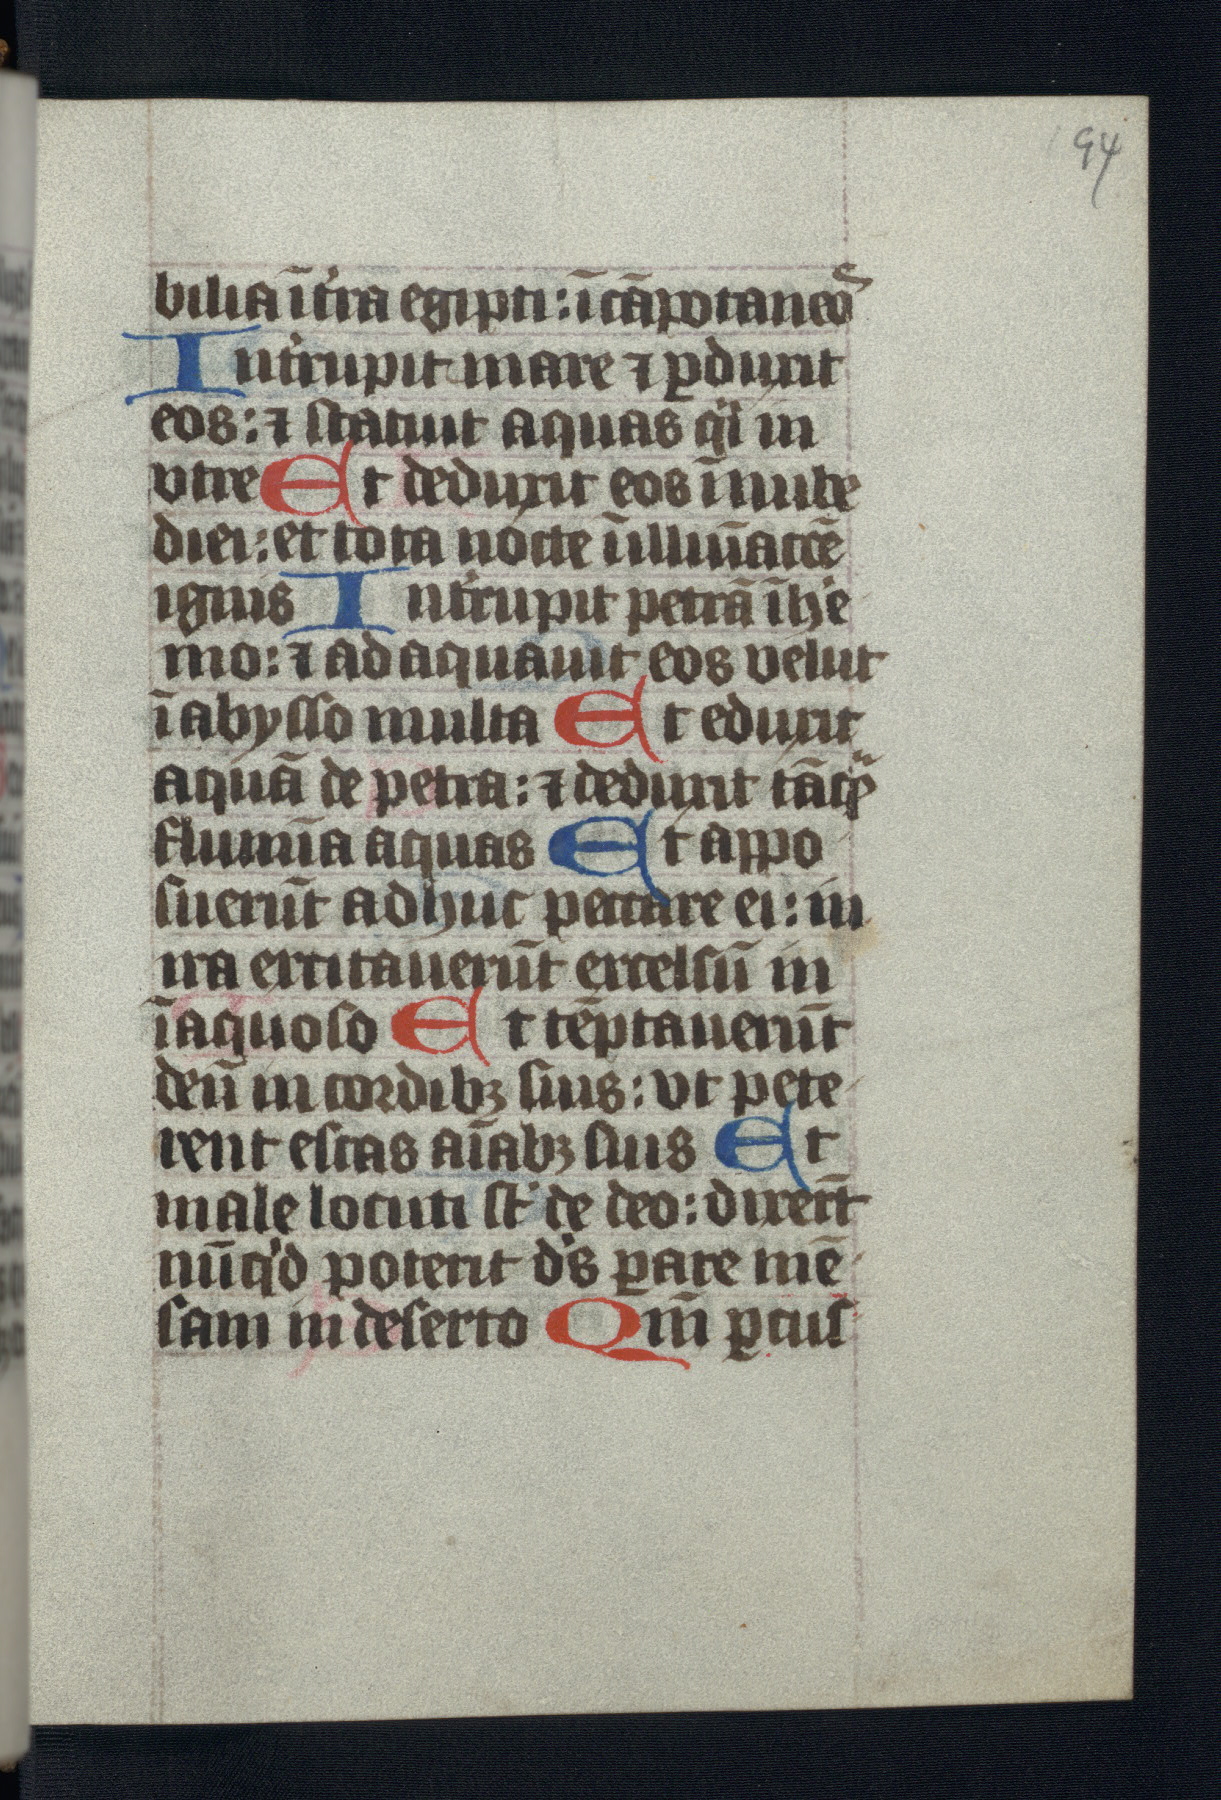 94
bilia ī t'ra egipti : ī cāpo taneoꝭ
Int'rupit mare ⁊ ꝑduxit
eos : ⁊ statuit aquas q̄i in
vtre Et deduxit eos ī nube
diei : et tota nocte ī illuīatōe
ignis Int'rupit petrā ī h'e
mo : ⁊ adaquauit eos velut
ī abysso multa Et eduxit
aquā de petra : ⁊ deduxit tāqͣ̄
flumīa aquas Et appo
suerūt adhuc peccare ei : in
ira excitauerūt excelsū in
īaquoso Et tēptauerūt
deū in cordibꝫ suis : vt pete
rent escas aīabꝫ suis Et
male locuti st' de deo : dixert̄
nūq'd poterit d's ꝑare mē
sam in deserto Qm̄ ꝑcus